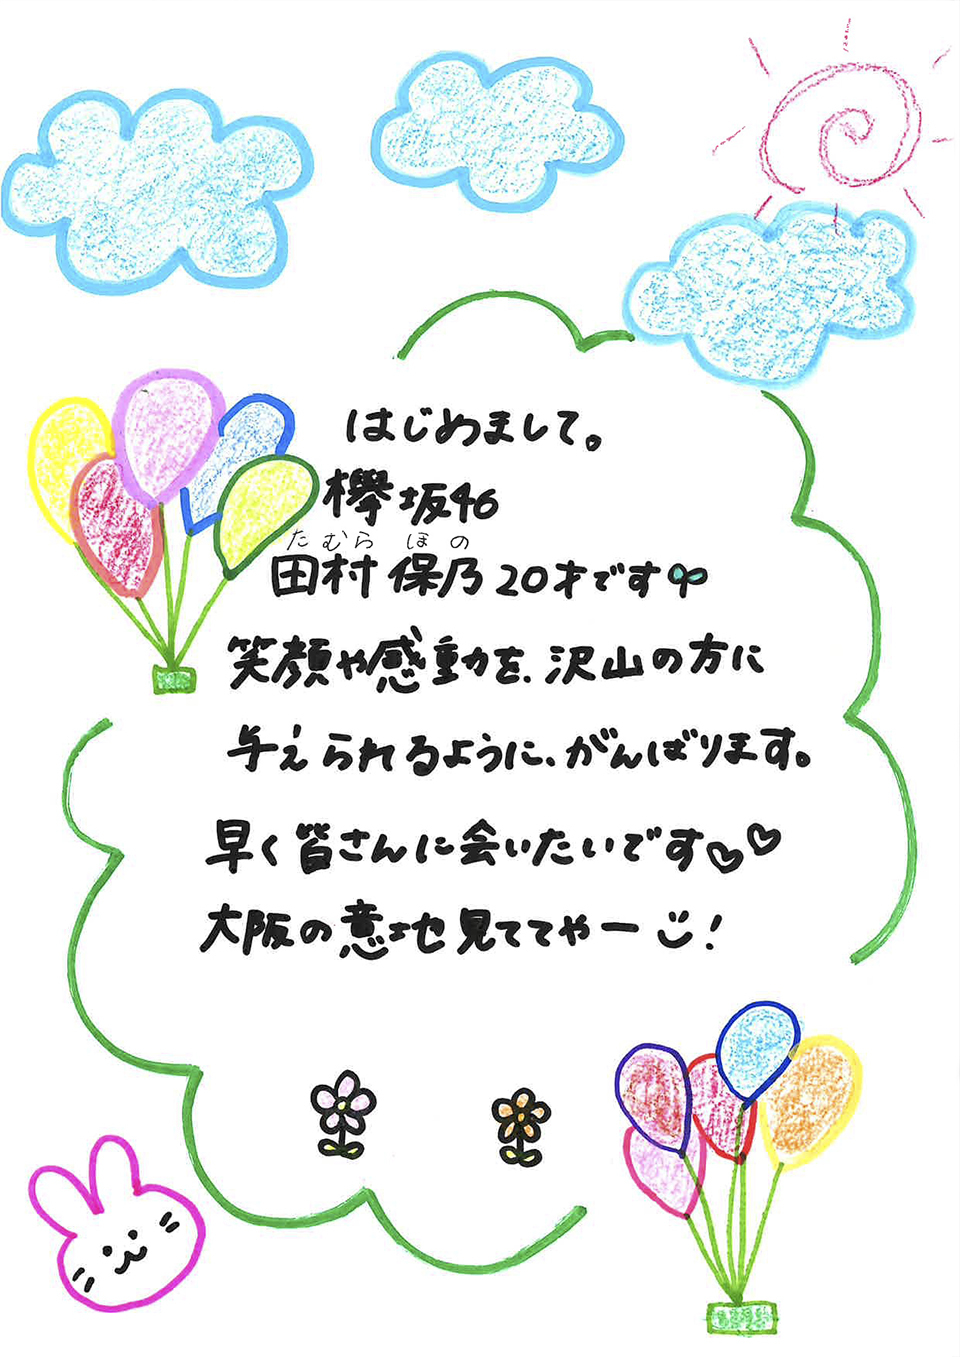 はじめまして。
欅坂46
たむら ほの
田村 保乃 20才です
笑顔や感動を、沢山の方に
与えられるように、がんばります。
早く皆さんに会いたいです♡♡
大阪の意地見ててやー!